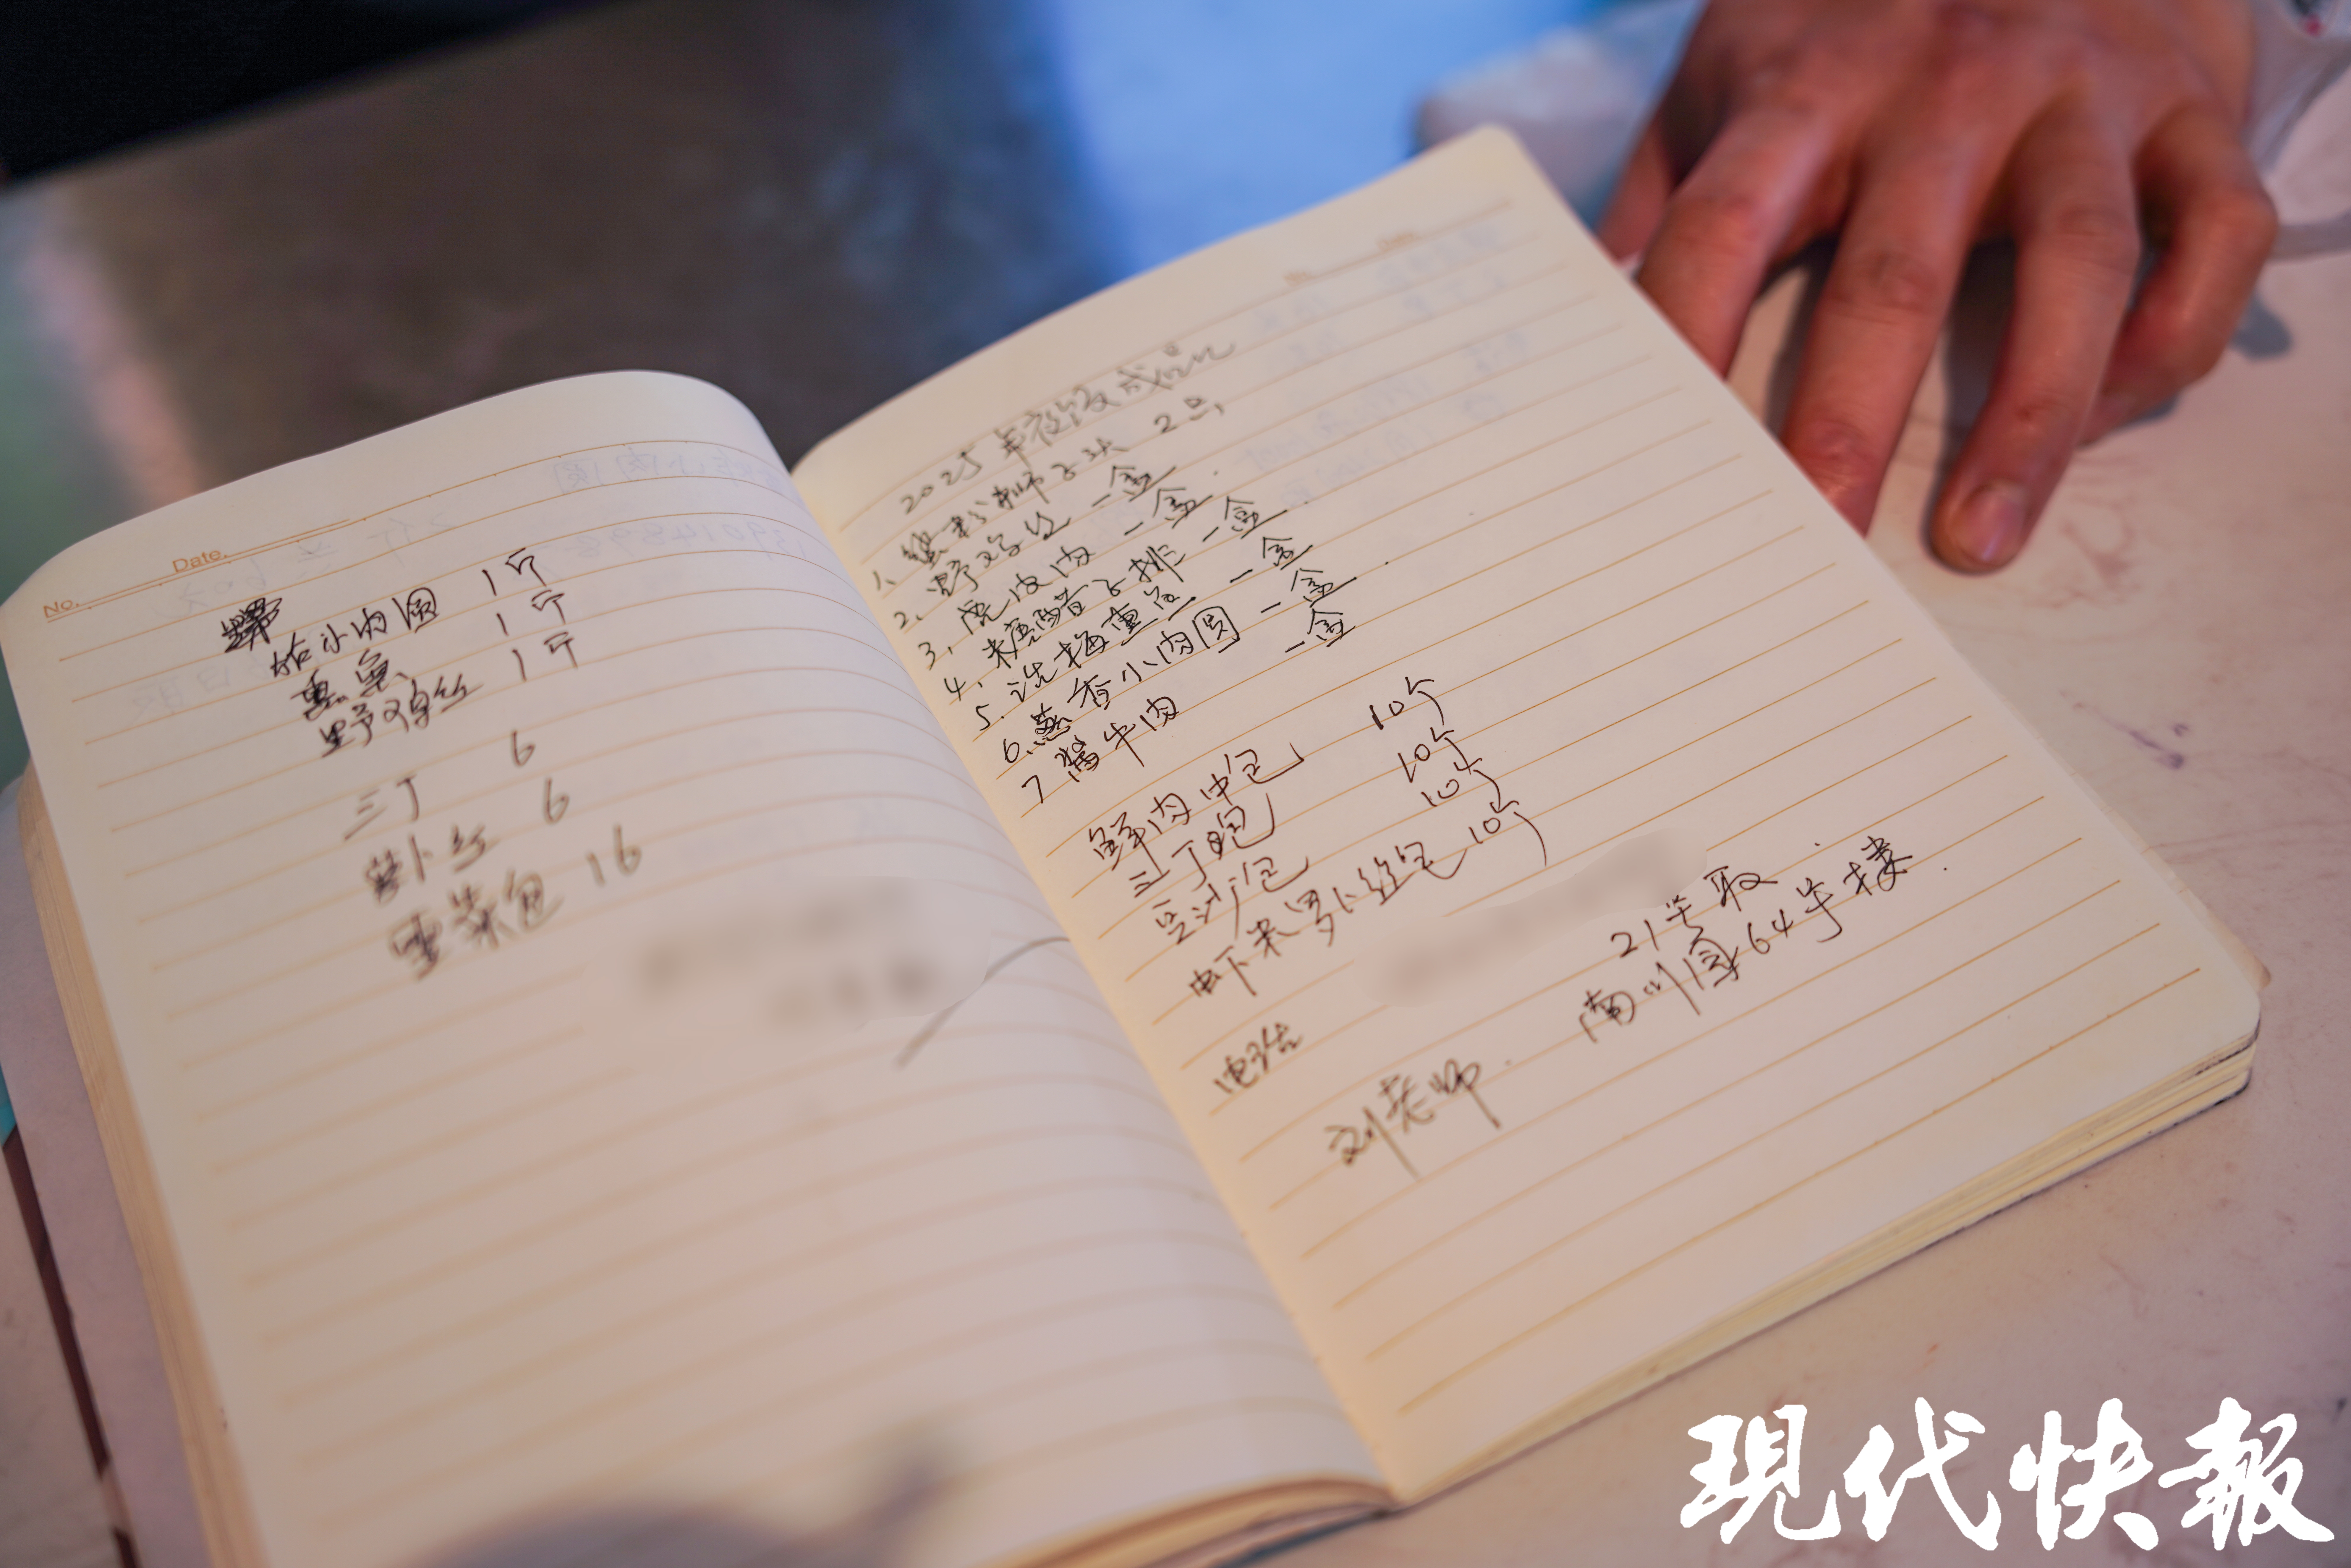 No.
Date.
小肉圆 1斤
熏鱼 1斤
野鸡丝 1斤
三丁 6
萝卜丝 6
雪菜包 16
2025年夜饭成品
1、蟹粉狮子头 2只
2、野鸡丝 一盒
3、虎皮肉 一盒
4、糖醋子排 一盒
5、话梅芸豆 一盒
6、葱香小肉圆 一盒
7 酱牛肉 一盒
鲜肉中包 10个
三丁包 10个
豆沙包 10个
虾米罗卜丝包 10个
21号取
电话
南川园64号楼
刘老师
現代快報